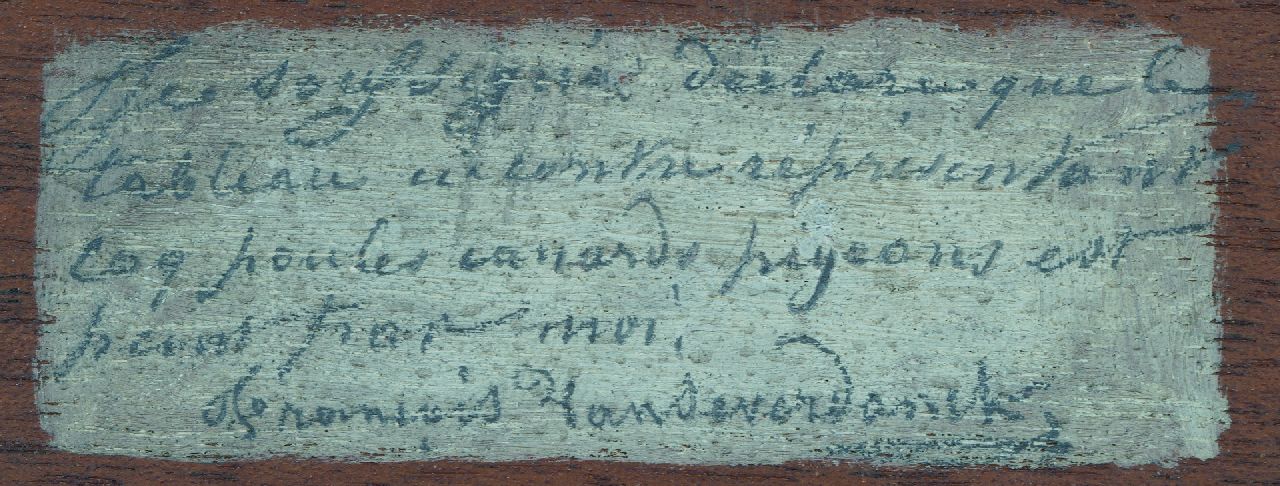 Je soussigné déclare que le
tableau ci contre représentant
Coq poules canards pigeons est
peint par moi.
François Vandeverdonck